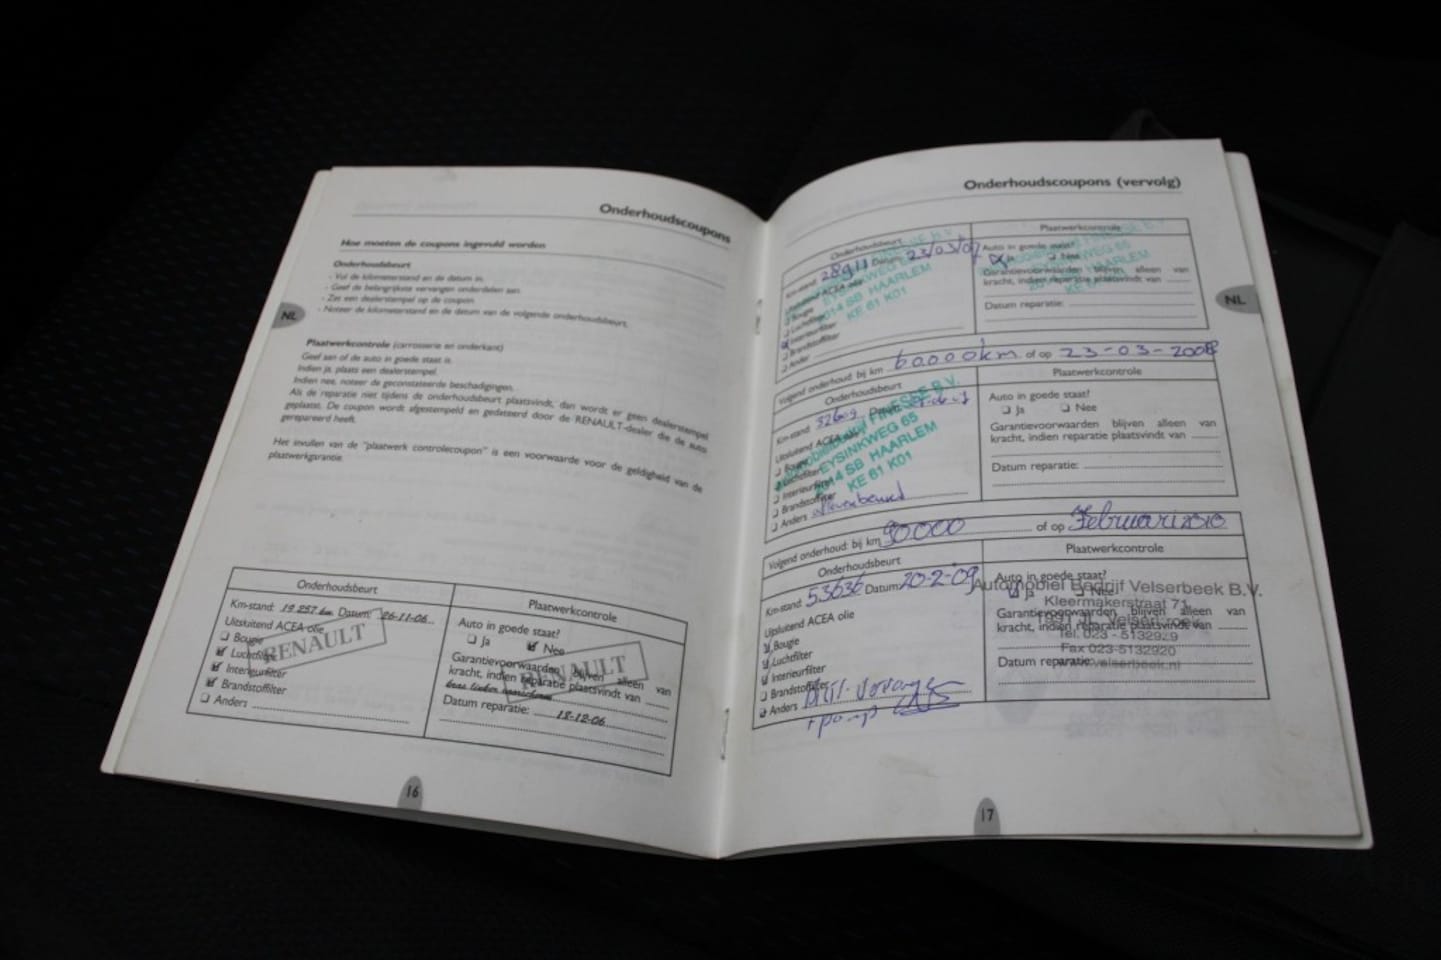 Onderhoudscoupons
Hoe moeten de coupons ingevuld worden
Onderhoudsbeurt
- Vul de kilometerstand en de datum in.
- Geef de belangrijkste vervangen onderdelen aan.
- Zet een dealerstempel op de coupon.
- Noteer de kilometerstand en de datum van de volgende onderhoudsbeurt.
NL
Plaatwerkcontrole (carrosserie en onderkant)
Geef aan of de auto in goede staat is.
Indien ja, plaats een dealerstempel.
Indien nee, noteer de geconstateerde beschadigingen.
Als de reparatie niet tijdens de onderhoudsbeurt plaatsvindt, dan wordt er geen dealerstempel
geplaatst. De coupon wordt afgestempeld en gedeteerd door de RENAULT-dealer die de auto
gerepareerd heeft.
Het invullen van de "plaatwerk controlecoupon" is een voorwaarde voor de geldigheid van de
plaatwerkgarantie.
Onderhoudsbeurt
Km-stand: 19.257 km Datum: 26-11-06
Uitsluitend ACEA olie
Bougie
Luchtfilter
Interieurfilter
Brandstoffilter
Anders
RENAULT
Plaatwerkcontrole
Auto in goede staat?
Ja Nee
Garantievoorwaarden blijven alleen van
kracht, indien reparatie plaatsvindt van
Datum reparatie: 18-12-06
RENAULT
16
Onderhoudscoupons (vervolg)
Onderhoudsbeurt
Km-stand: 28911 Datum: 23/03/07
Uitsluitend ACEA olie
Bougie
Luchtfilter
Interieurfilter
Brandstoffilter
Anders
EYSINKWEG 65
2014 SB HAARLEM
KE 61 K01
Plaatwerkcontrole
Auto in goede staat?
Ja Nee
Garantievoorwaarden blijven alleen van
kracht, indien reparatie plaatsvindt van
Datum reparatie:
NL
Volgend onderhoud bij km 60000km of op 23-03-2008
Onderhoudsbeurt
Km-stand: Datum:
Uitsluitend ACEA olie
Bougie
Luchtfilter
Interieurfilter
Brandstoffilter
Anders
Automobielbedrijf FINESSE B.V.
EYSINKWEG 65
2014 SB HAARLEM
KE 61 K01
Plaatwerkcontrole
Auto in goede staat?
Ja Nee
Garantievoorwaarden blijven alleen van
kracht, indien reparatie plaatsvindt van
Datum reparatie:
Volgend onderhoud: bij km 90000 of op Februari 2010
Onderhoudsbeurt
Km-stand: 53636 Datum: 20-2-09
Uitsluitend ACEA olie
Bougie
Luchtfilter
Interieurfilter
Brandstoffilter
Anders
+ pomp
Plaatwerkcontrole
Auto in goede staat?
Ja Nee
Garantievoorwaarden blijven alleen van
kracht, indien reparatie plaatsvindt van
Datum reparatie:
Automobiel Bedrijf Velserbeek B.V.
Kleermakerstraat 71
Tel. 023 - 5132929
Fax 023-5132920
velserbeek.nl
17